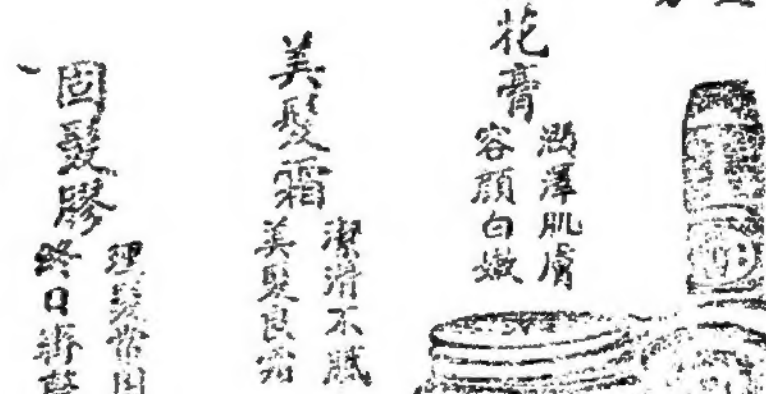 花膏
潤澤肌膚
容顏白嫩
美髮霜
潔滑不膩
美髮良霜
固髮膠
理髮常用
終日